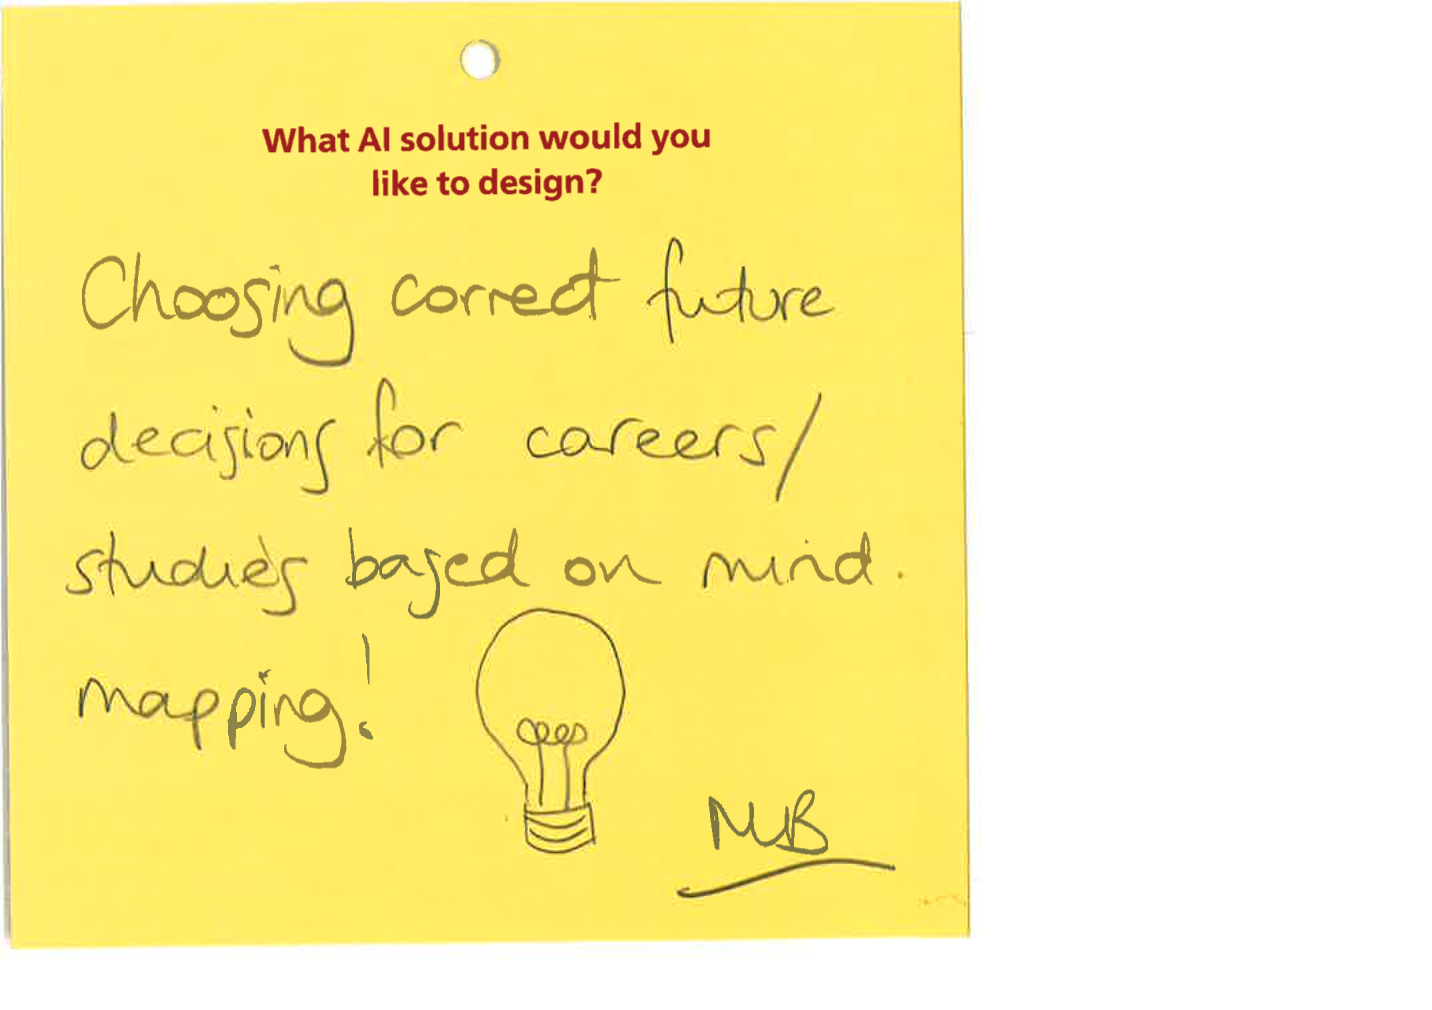 What AI solution would you
like to design?
Choosing correct future
decisions for careers/
studies based on mind.
mapping!
MB